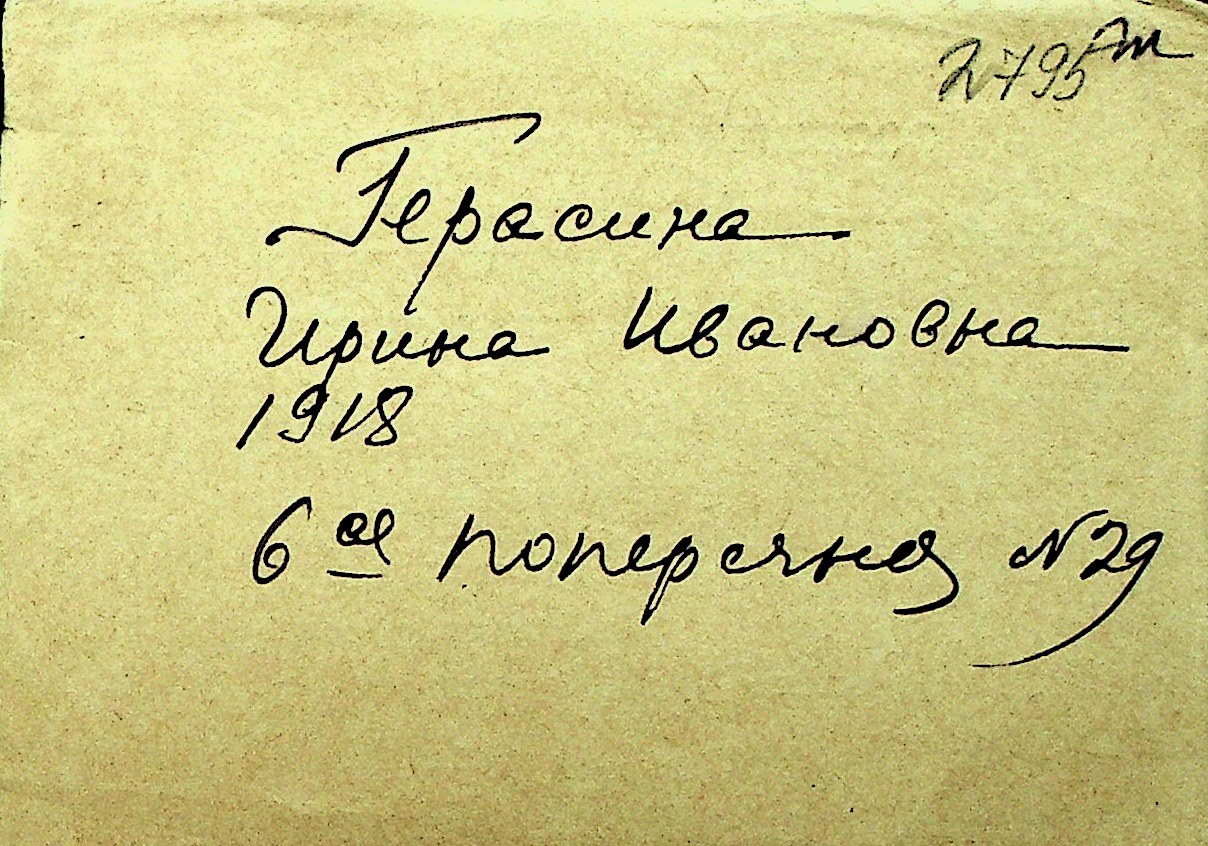 2795
Герасина
Ирина Ивановна
1918
6 ая поперечная N 29